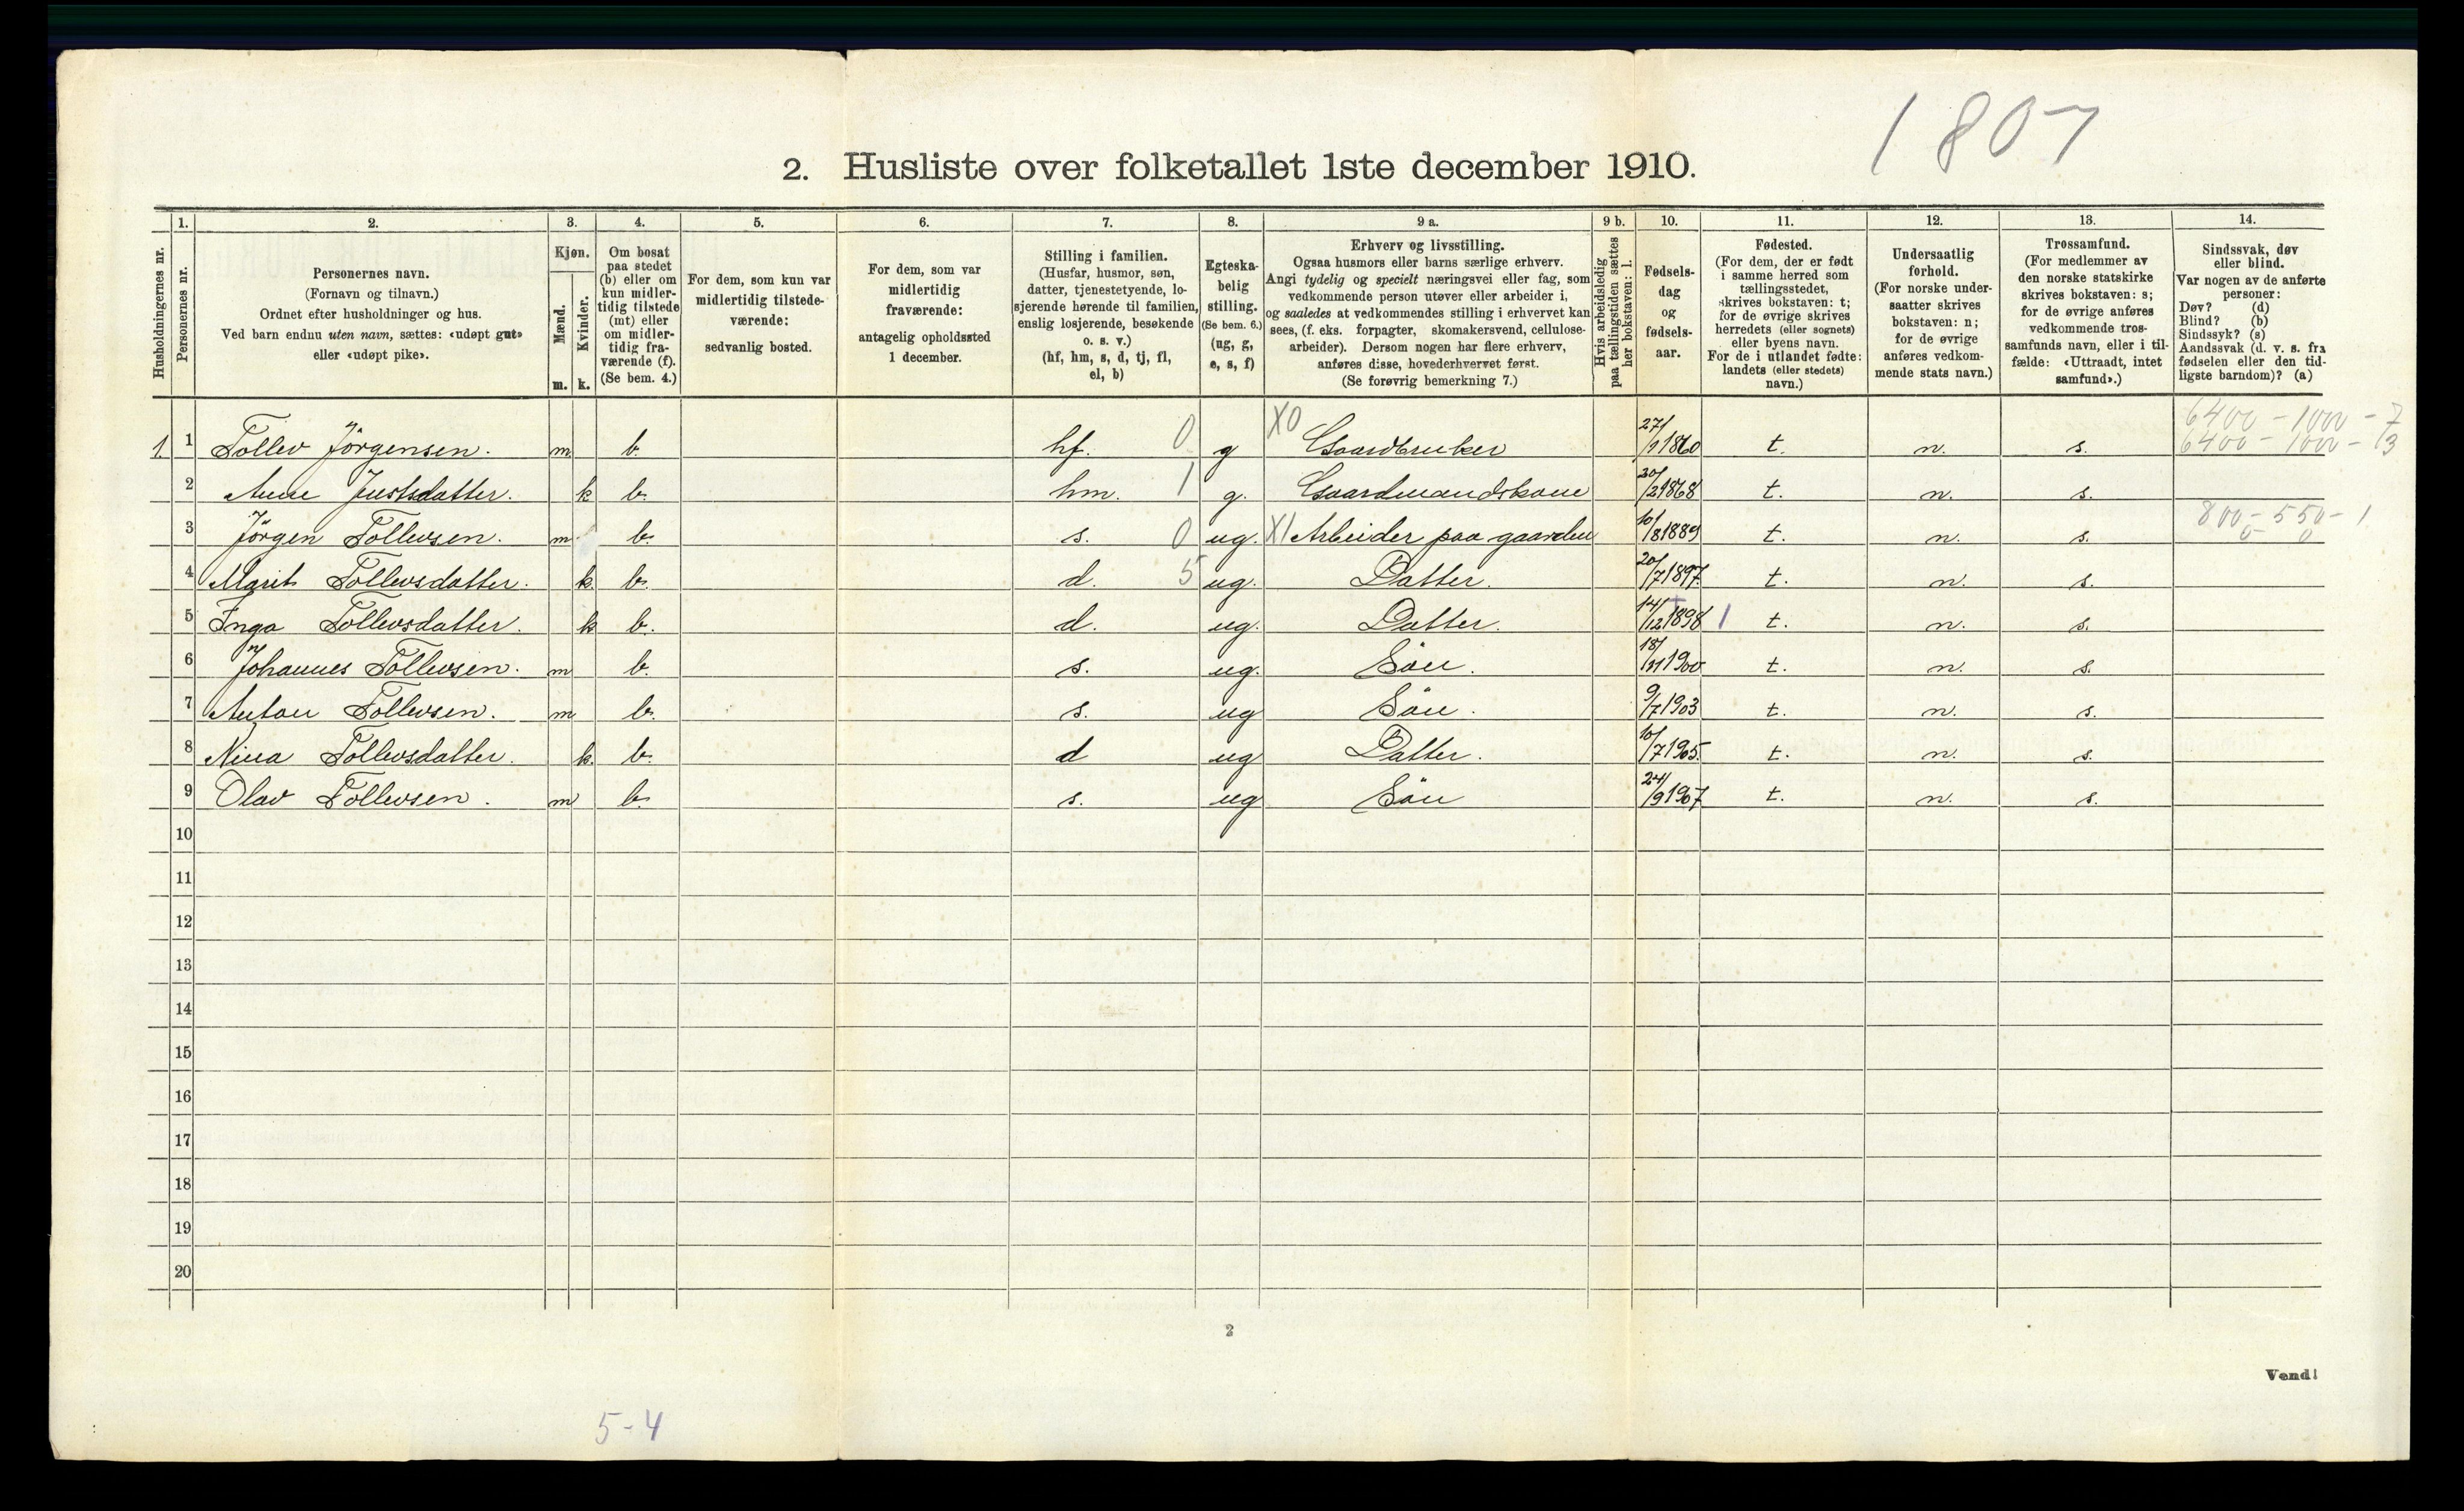 1807
2. Husliste over folketallet 1ste december 1910.
Husholdningernes nr.
1.
Personernes nr.
2.
Personernes navn.
(Fornavn og tilnavn.)
Ordnet efter husholdninger og hus.
Ved barn endnu uten navn, sættes: «udøpt gut»
eller «udøpt pike».
3.
Kjøn.
Mænd.
m.
Kvinder.
k.
4.
Om bosat
paa stedet
(b) eller om
kun midler-
tidig tilstede
(mt) eller
om midler-
tidig fra-
værende (f).
(Se bem. 4.)
5.
For dem, som kun var
midlertidig tilstede-
værende:
sedvanlig bosted.
6.
For dem, som var
midlertidig
fraværende:
antagelig opholdssted
1 december.
7.
Stilling i familien.
(Husfar, husmor, søn,
datter, tjenestetyende, lo-
sjerende hørende til familien,
enslig losjerende, besøkende
o. s. v.)
(hf, hm, s, d, tj, fl,
el, b)
8.
Egteska-
belig
stilling.
(Se bem. 6.)
(ug, g,
e, s, f)
9 a.
Erhverv og livsstilling.
Ogsaa husmors eller barns særlige erhverv.
Angi tydelig og specielt næringsvei eller fag, som
vedkommende person utøver eller arbeider i,
og saaledes at vedkommendes stilling i erhvervet kan
sees, (f. eks. forpagter, skomakersvend, cellulose-
arbeider). Dersom nogen har flere erhverv,
anføres disse, hovederhvervet først.
(Se forøvrig bemerkning 7.)
9 b.
Hvis arbeidsledig
paa tællingstiden sættes
her bokstaven: l.
10.
Fødsels-
dag
og
fødsels-
aar.
11.
Fødested.
(For dem, der er født
i samme herred som
tællingsstedet,
skrives bokstaven: t;
for de øvrige skrives
herredets (eller sognets)
eller byens navn.
For de i utlandet fødte:
landets (eller stedets)
navn.)
12.
Undersaatlig
forhold.
(For norske under-
saatter skrives
bokstaven: n;
for de øvrige
anføres vedkom-
mende stats navn.)
13.
Trossamfund.
(For medlemmer av
den norske statskirke
skrives bokstaven: s;
for de øvrige anføres
vedkommende tros-
samfunds navn, eller i til-
fælde: «Uttraadt, intet
samfund».)
14.
Sindssvak, døv
eller blind.
Var nogen av de anførte
personer:
Døv? (d)
Blind? (b)
Sindssyk? (s)
Aandssvak (d. v. s. fra
fødselen eller den tid-
ligste barndom)? (a)
6400 - 1000 - 7
1. 1 Tollev Jörgensen. m. b. hf. 0 g X0 Gaardbruker 27/9 1860 t. n. s. 6400 - 1000 - 13
2 Anne Justsdatter. k b. hm. 1 g. Gaardmandskone 20/2 1868 t. n. s.
3 Jörgen Tollevsen. m b. s. 0 ug. X1 Arbeider paa gaarden 10/8 1889 t. n. s. 800 - 550 - 1
0 0
4 Marit Tollevsdatter. k. b. d. 5 ug. Datter. 20/7 1897. t. n. s.
5 Inga Tollevsdatter. k b. d. ug. Datter. 14/12 1898 1 t. n. s.
6 Johannes Tollevsen. m b. s. ug. Sön. 18/11 1900 t. n. s.
7 Anton Tollevsen. m b. s. ug Sön. 9/7 1903 t. n. s.
8 Nina Tollevsdatter. k. b. d ug Datter. 10/7 1905. t. n. s.
9 Olav Tollevsen. m b. s. ug Sön 24/9 1907 t. n. s.
10
11
12
13
14
15
16
17
18
19
20
2
Vend!
5-4